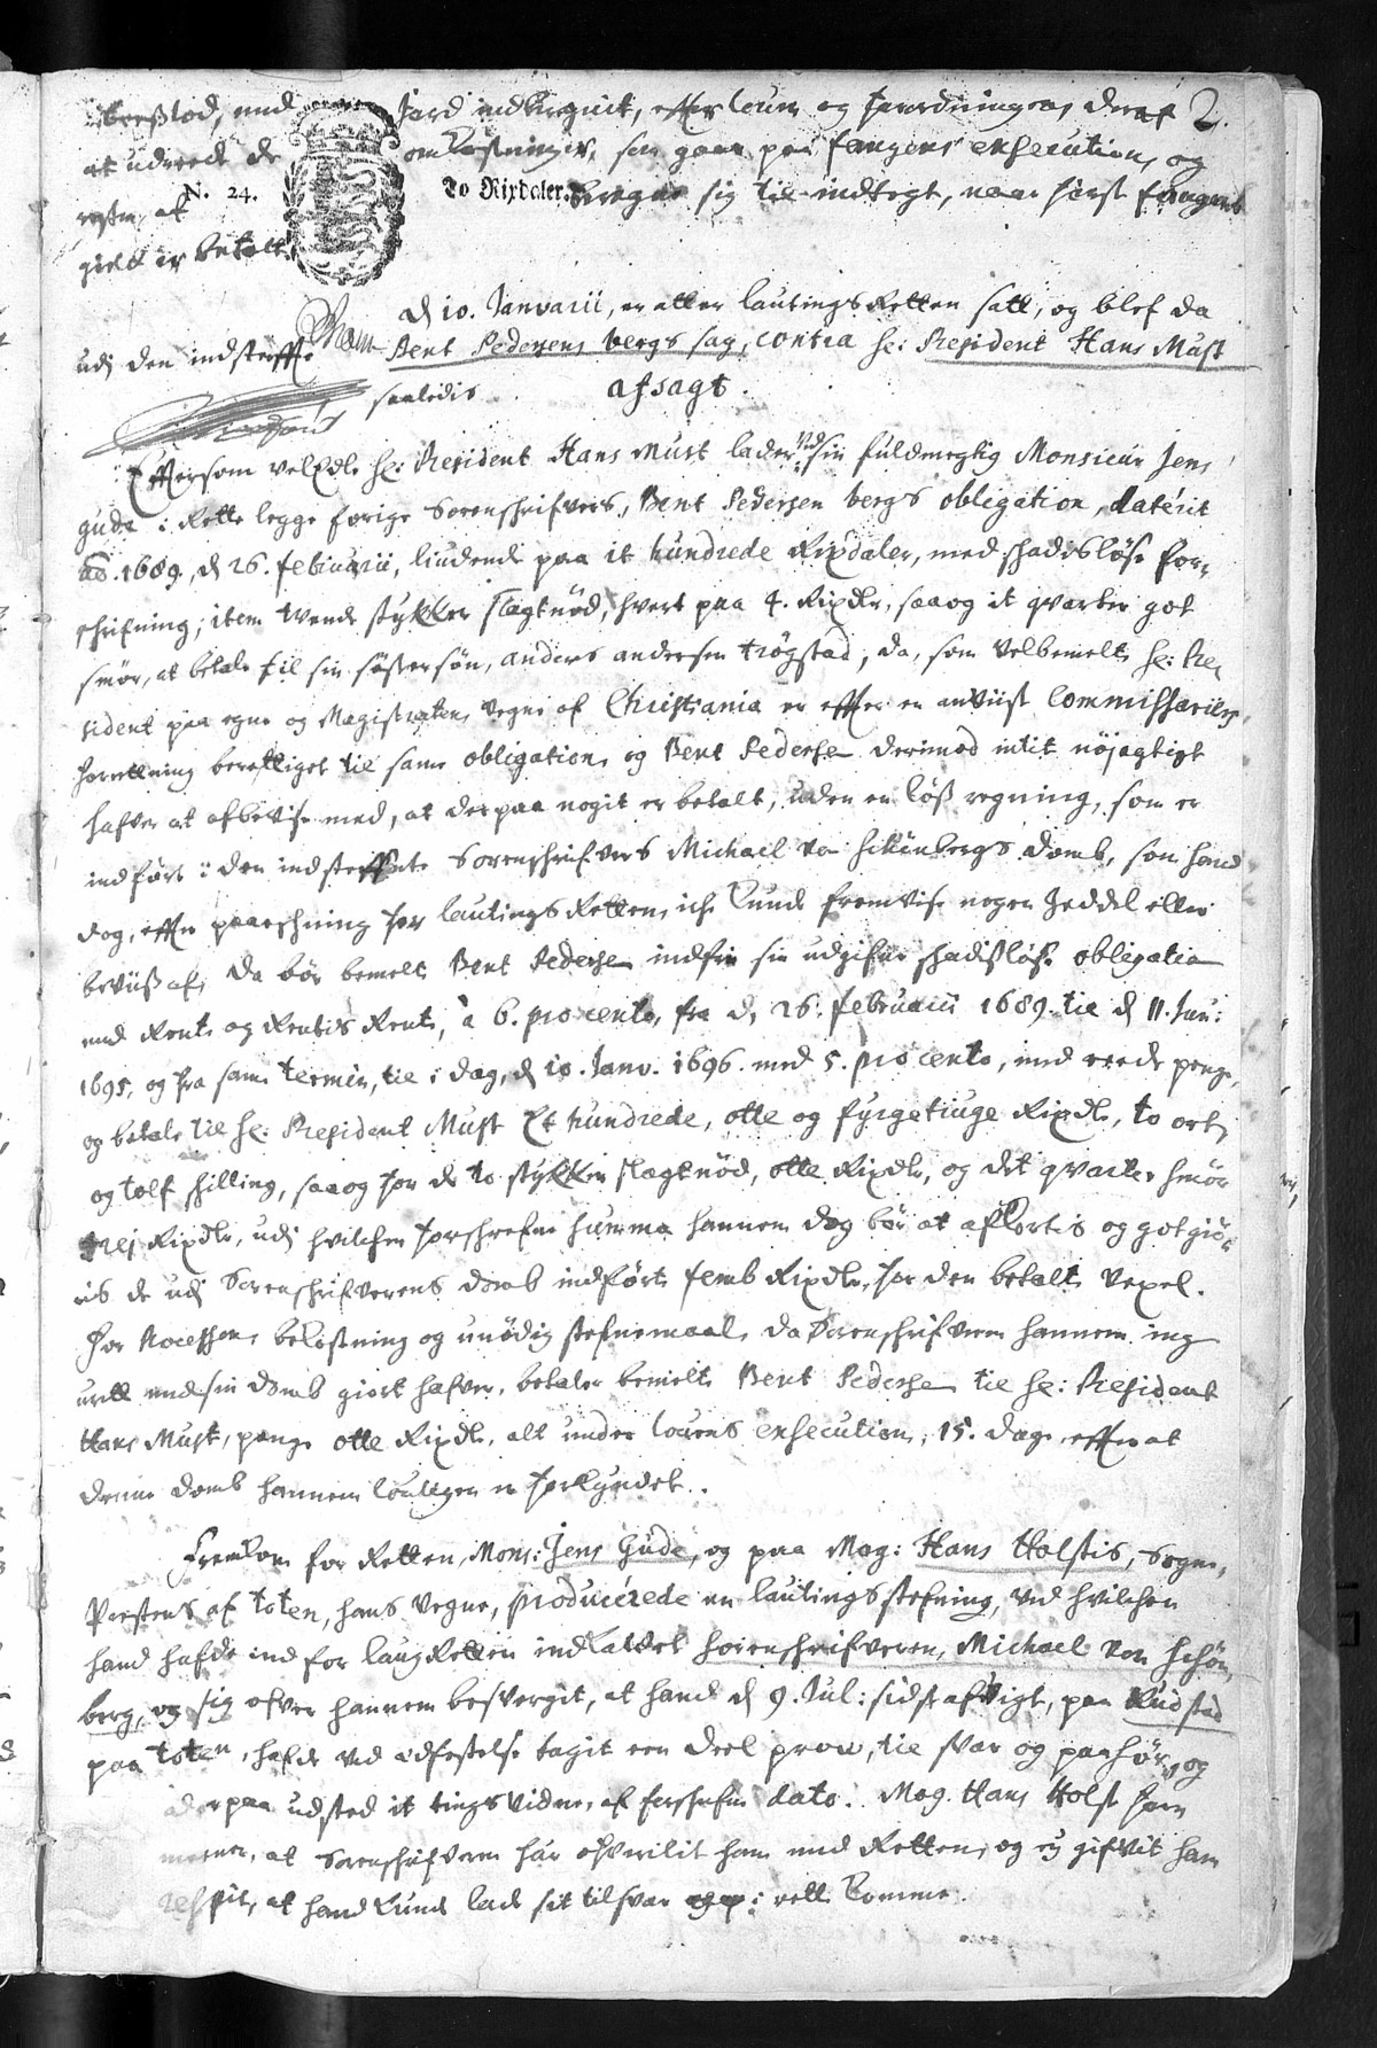 2.
Jord indkrefuit, effter loven og forordningen, deraf
omkostninger, som gaar paa fangens exsecution, og
beregne sig til indtegt, naar først fangens
at udrede de
N. 24.
To Rixdaler.
resten at
gield er betalt.
udj den indsteffte
d 10. Januarii, er atter lautingsRetten satt, og blef da
Bent Pedersens bergs sag, contra Hr: Præsident Hans Must
saaledis afsagt.
Efftersom velEdle Hr: Præsident Hans Must lader ved sin fuldmegtig Monsieur Jens
gude i Rette legge forige Sorenschrifvers, Bent Pedersen bergs obligation, daterit
Ao. 1689, d 26. februarii, liudende paa it hundrede Rixdaler, med schadisløse for-
schrifning; item tvende stykker slagtnød, hvert paa 4. Rixdlr, saa og it qvarter got
smør, at betale til sin søstersøn, anders andersen trøgstad, da, som velbemelte Hr: Præ-
sident paa egne og Magistratens vegne af Christiania er effter en anviist Commissariers
forretning berettiget til samme obligation, og Bent Pedersen derimod intit nøjagtigt
hafver at afbevise med, at derpaa nogit er betalt, uden en løs regning, som er
indført i den indsteffnte Sorenschrifvers Michael von Schönbergs domb, som hand
dog, effter paaeschning for lautings Retten, iche kunde fremvise nogen Zeddel eller
beviis af, da bør bemelte Bent Pedersen indfrie sin udgifne schadisløse obligation
med Rente og Rentis Rente, à 6. pro cento, fra d, 26. februarii 1689. til d 11. Jun:
1695, og fra samme termin, til i dag, d 10. Janv. 1696. med 5. pro cento, med reede penge,
og betale til Hr: Præsident Must Et hundrede, otte og fyrgetiuge Rixdlr, to ort,
og tolf schilling, saa og for de to stykker slagtnød, otte Rixdlr, og det qvarter smør
trej Rixdlr, udj hvilchen forschrefne summa hannem dog bør at afkortis og gotgiø-
ris de udj Sorenschrifverens domb indførte femb Rixdlr, for den betalte vexel.
For Processens bekostning og unødig steffnemaal, da Sorenschrifveren hannem ing
urett med sin domb giort hafver, betaler bemelte Bent Pedersen til Hr: Præsident
Hans Must, penge otte Rixdlr, alt under lovens exsecution, 15. dage, effter at
denne domb hannem louligen er forkyndet.
Fremkom for Retten, Mons: Jens Gude, og paa Mag: Hans Holstis, Sogne-
Prestens af toten, hans vegne, producerede en lautings stefning, ved hvilchen
hand hafde ind for laugRetten indkaldet Sorenschrifveren, Michael von Schön-
berg, og sig ofver hannem besvergit, at hand d 9. Jul: sidst afvigt, paa Rudstad
paa toten, hafde ved edfestelse tagit een deel prov, til svar og paahør, og
derpaa udsted it tingsvidne, af forschrefne dato. Mag. Hans Holst for-
meener, at Sorenschrifveren har ofverilit ham med Retten, og ej gifvit ham
respit, at hand kunde lade sit tilsvar i rette komme.